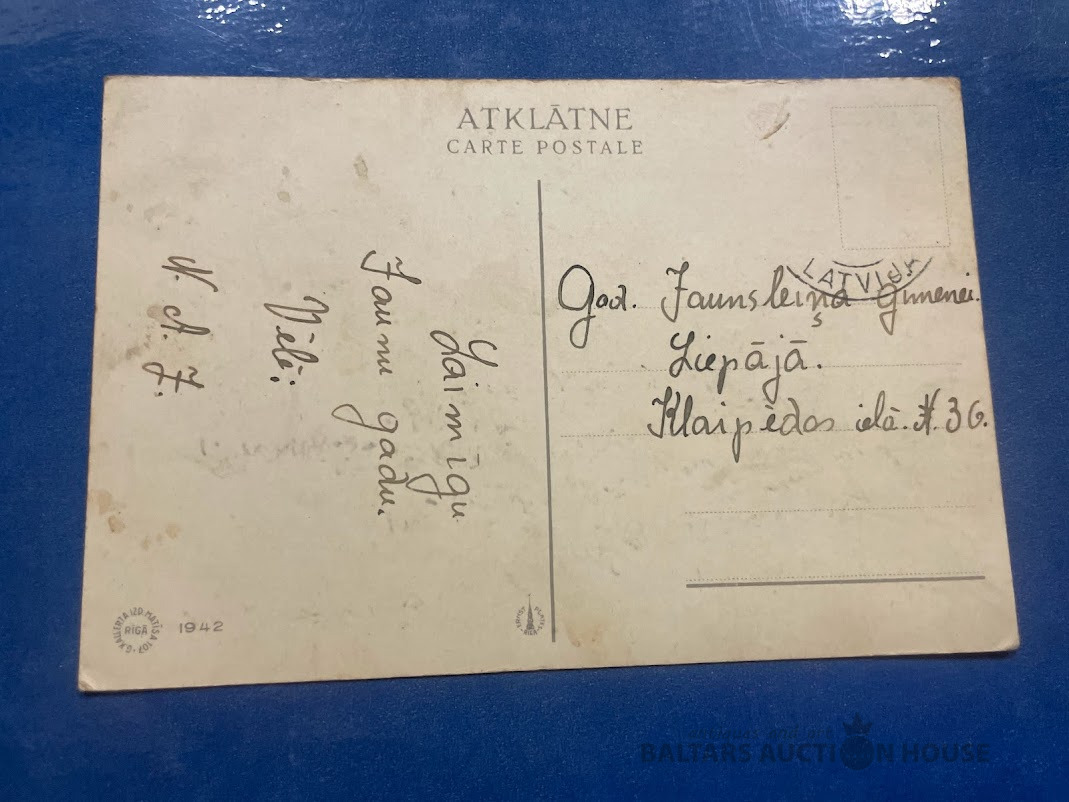 ATKLĀTNE
CARTE POSTALE
LATVIJA
God. Jaunsleiņa ģimenei.
Liepājā.
Klaipēdas ielā. N. 36.
Laimīgu
Jaunu gadu.
Vēlē:
N. A. J.
G. KALLERTA IZD. MATĪSA 107
RĪGĀ
1942
RĪGA
BALTARS AUCTION HOUSE